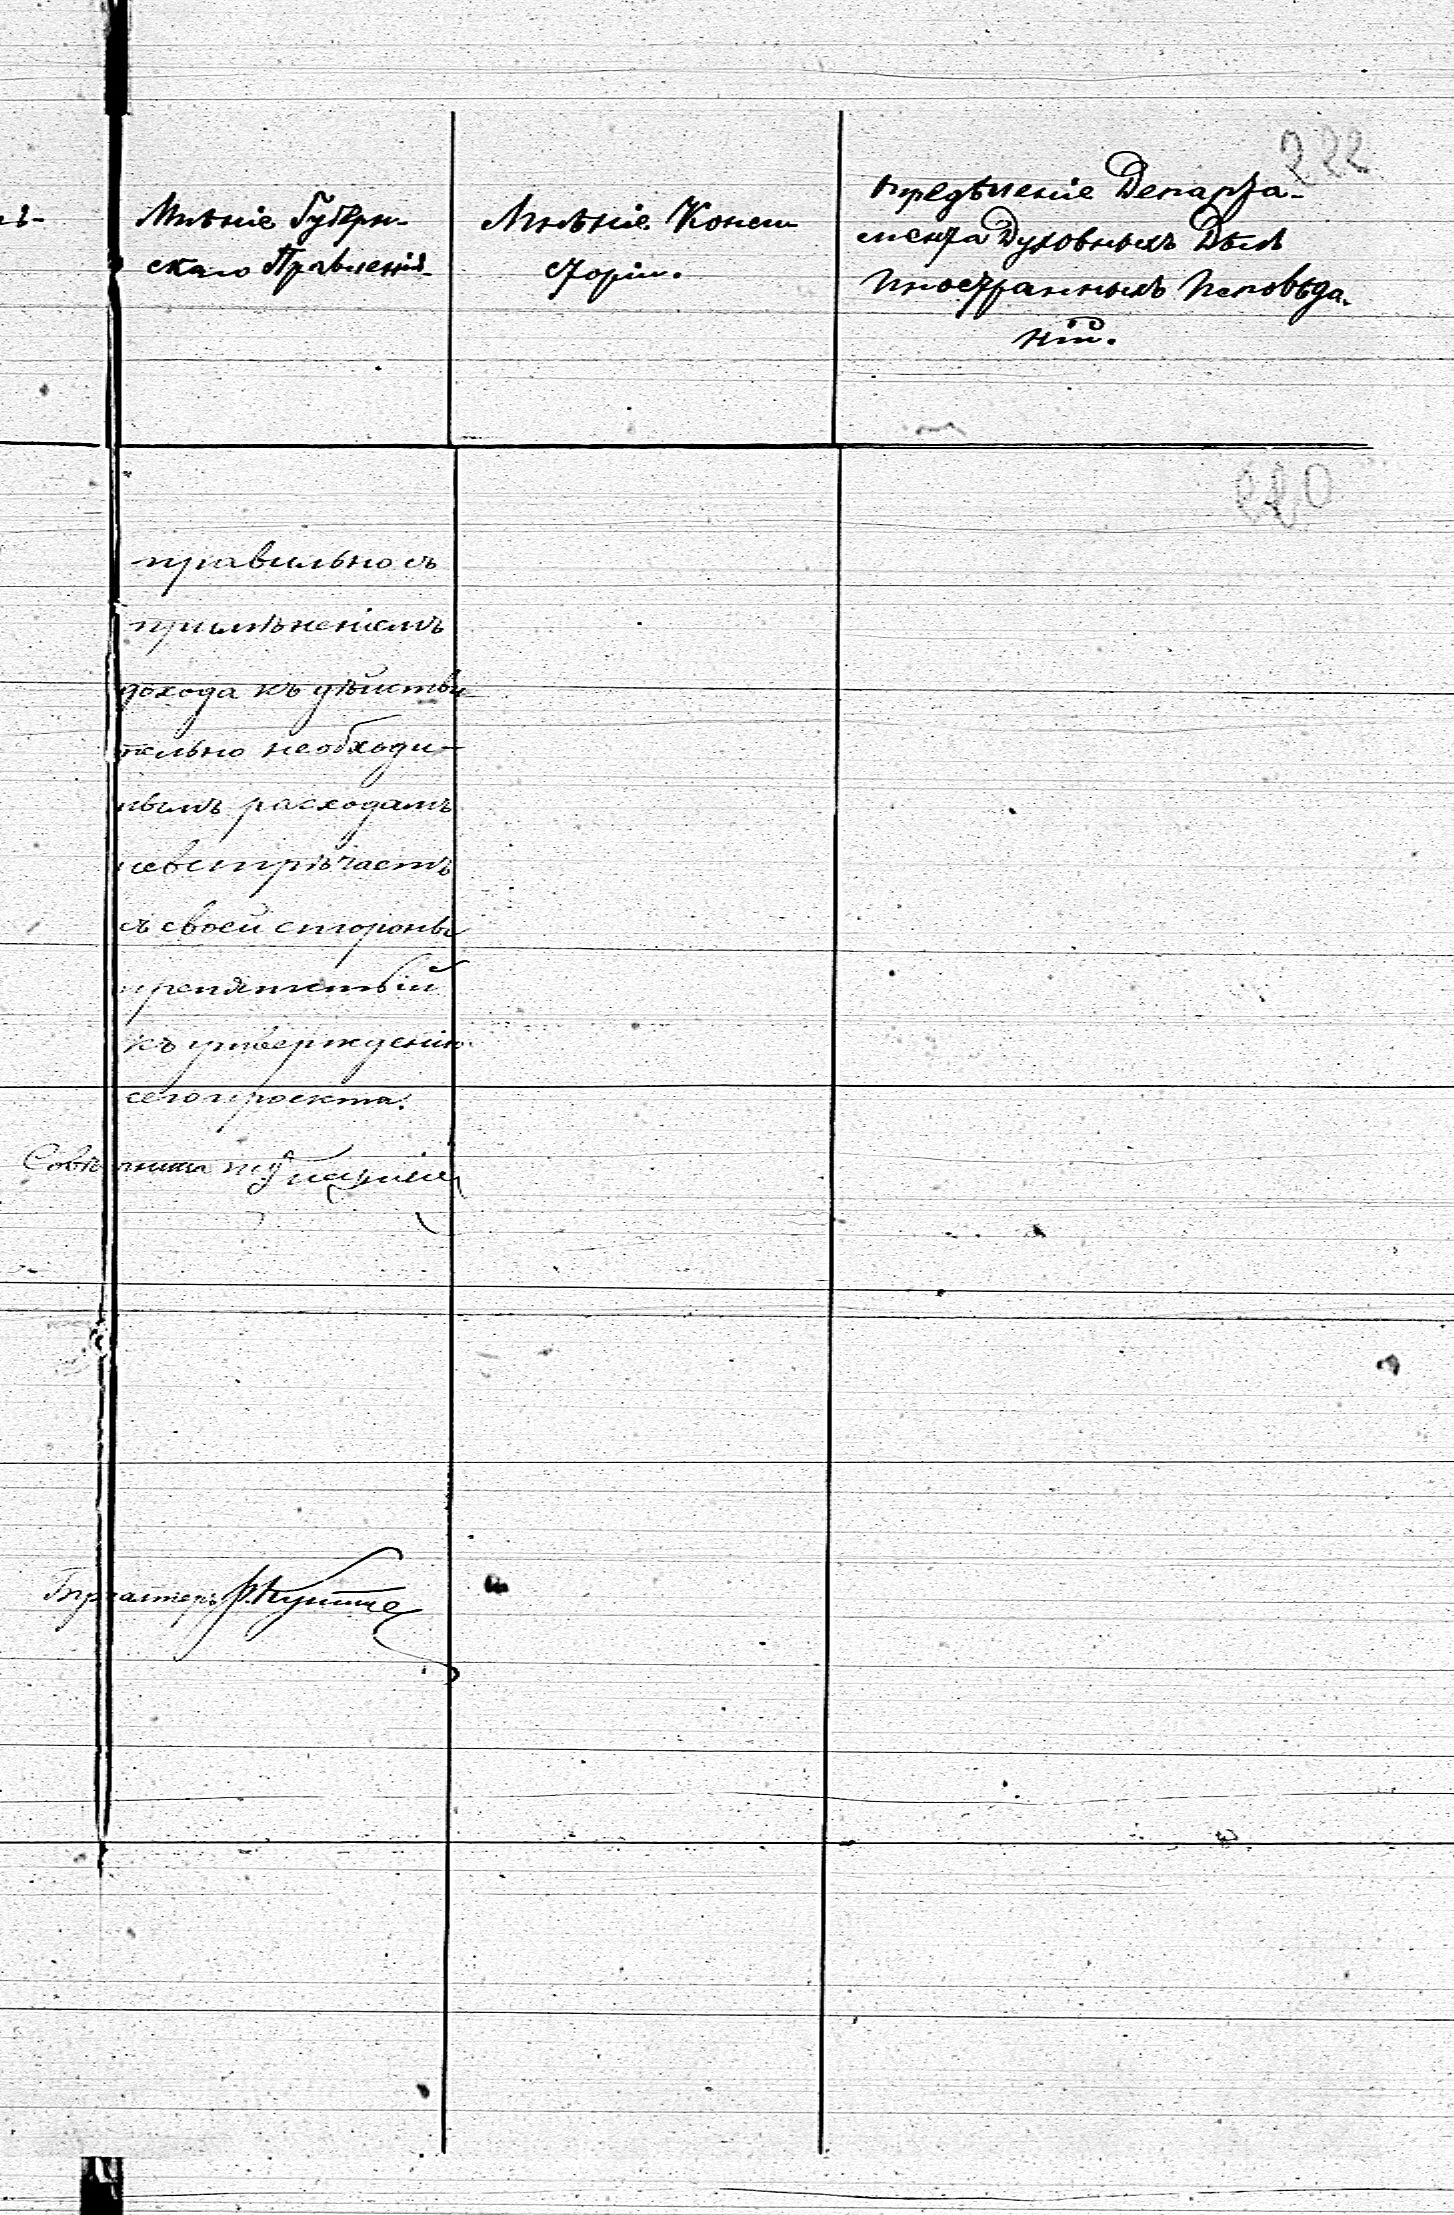 222
Мнѣніе Губерн-
скаго Правленія.
Мнѣніе Конси
сторіи.
Опредѣленіе Департа-
мента Духовныхъ Дѣлъ
Иностранныхъ Исповѣда-
ній.
220
правильно съ
примѣненіемъ
дохода къ дѣйстви
тельно необходи-
мымъ расходамъ
невстрѣчаетъ
съ своей стороны
препятствій
къ утвержденію
сего проекта.
Совѣтникъ
Бухгалтеръ